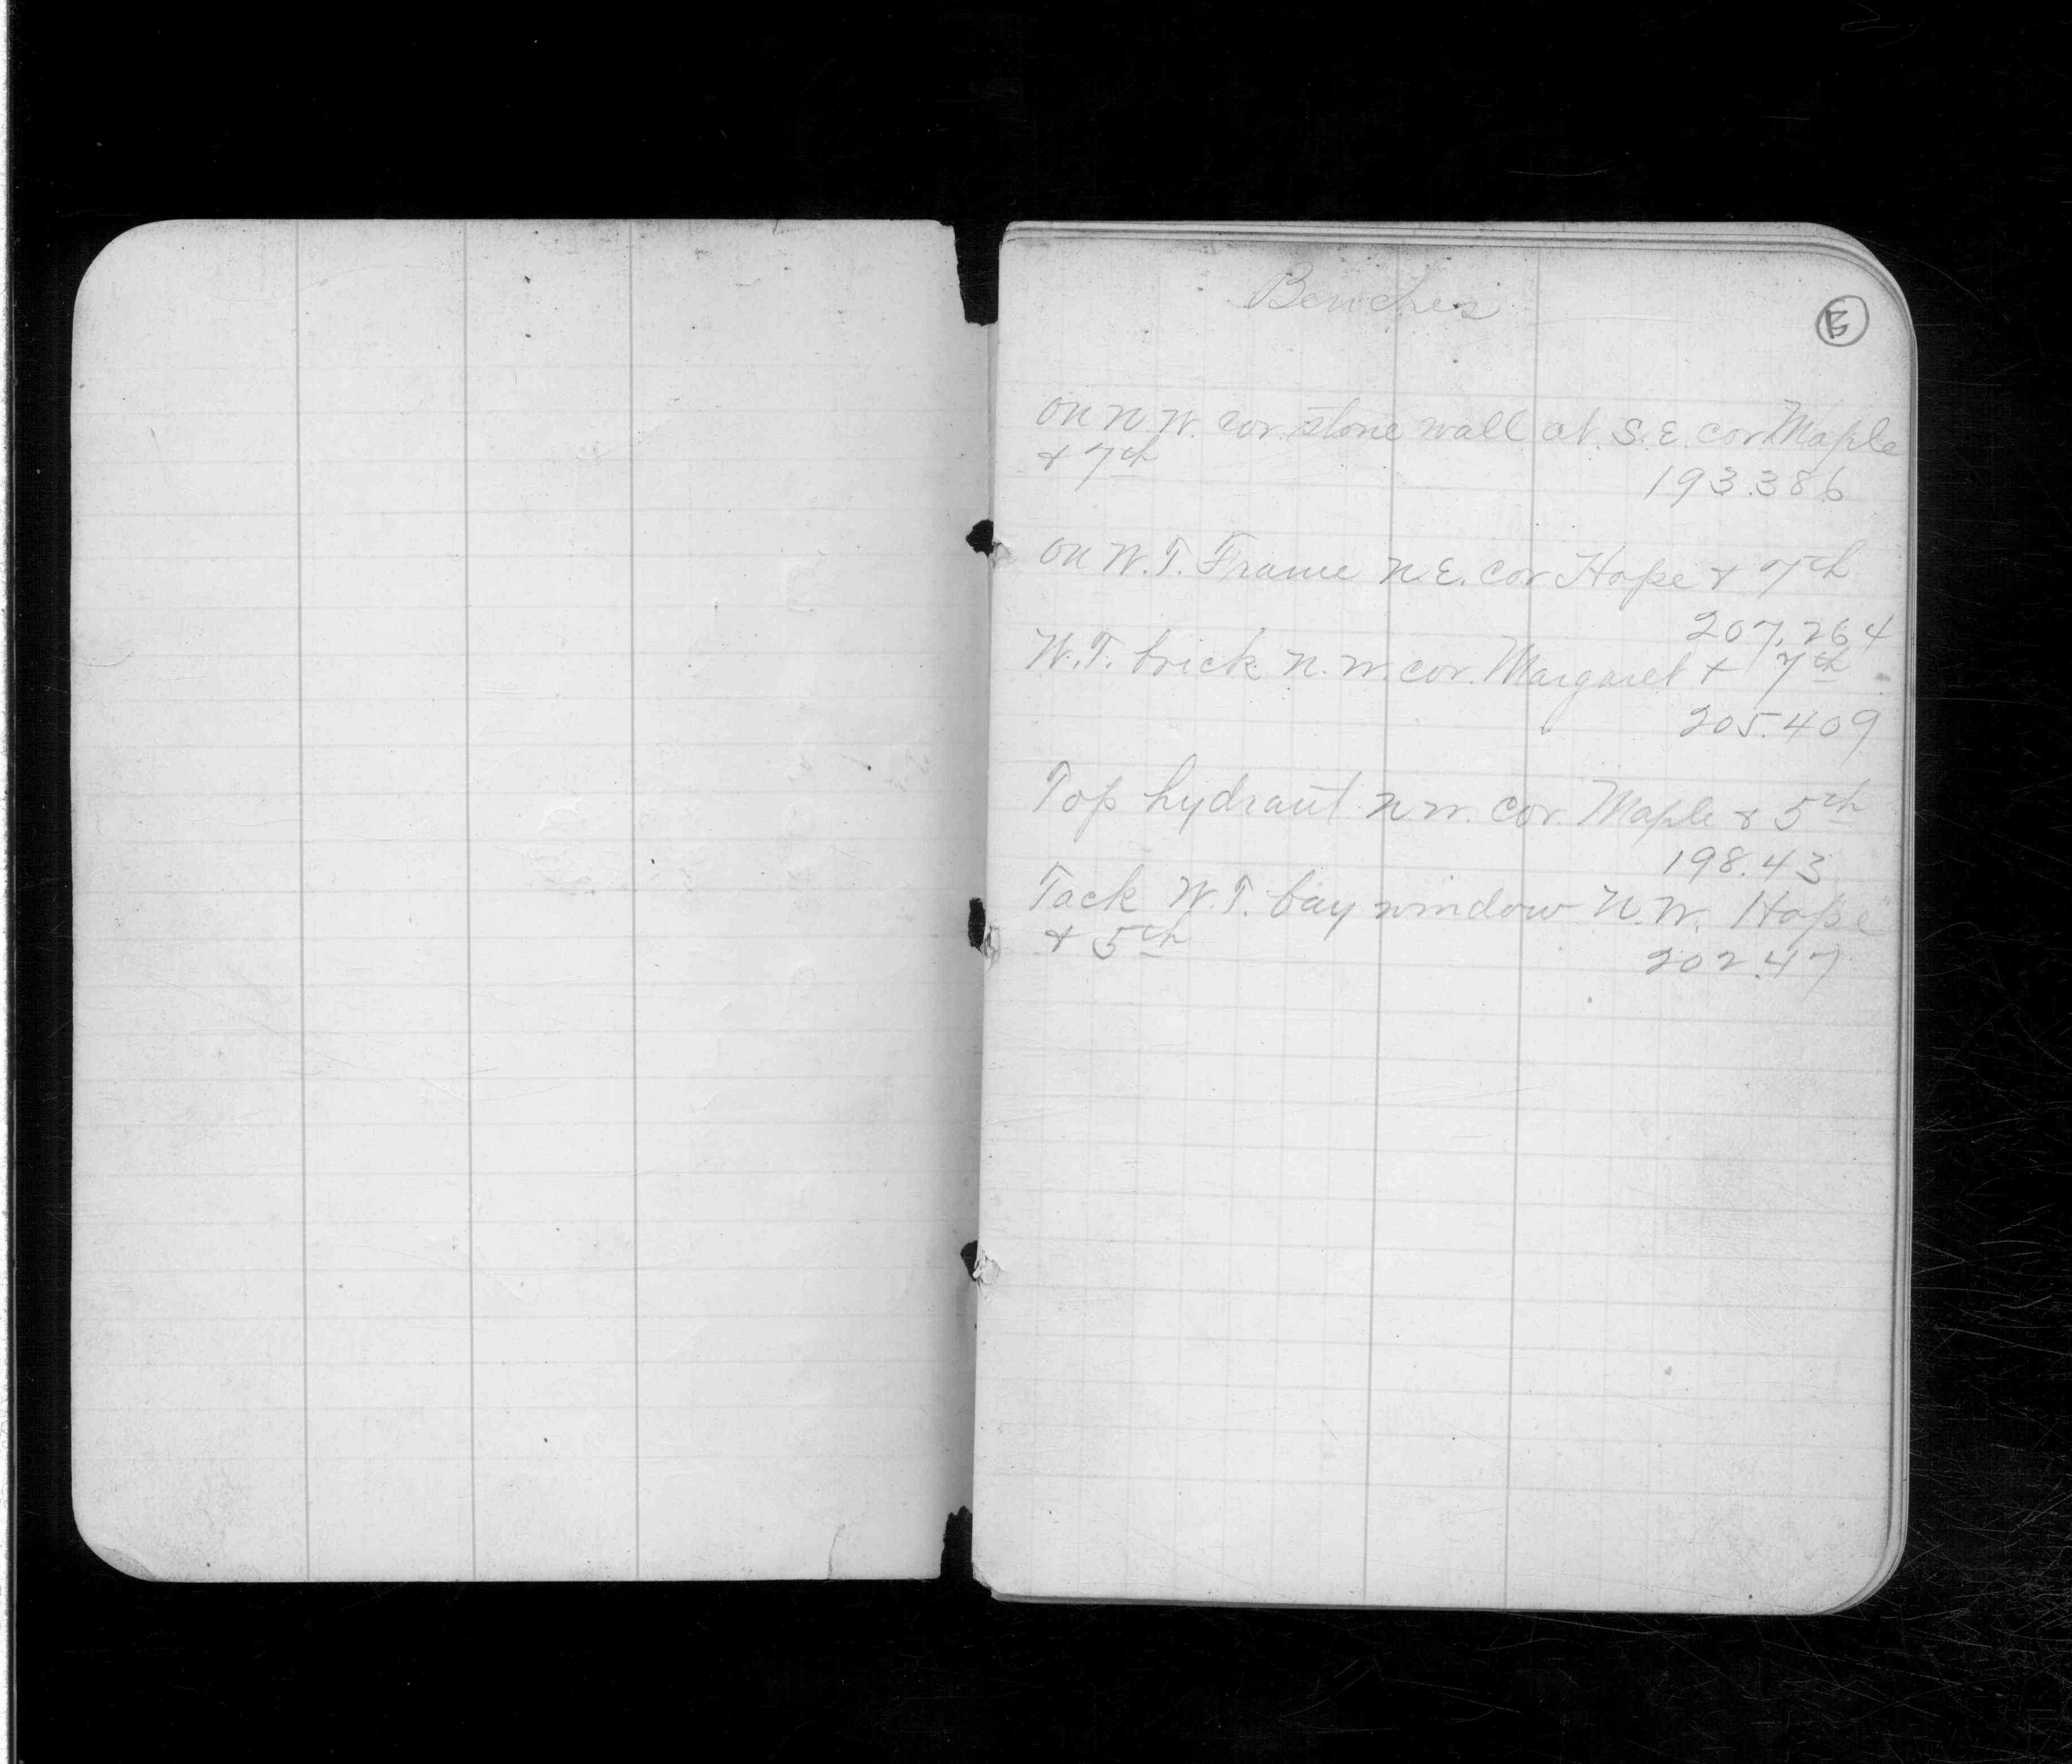 Benches
B
on N.W. cor. stone wall at S.E. cor Maple
& 7th
193.386
on W.T. Frame N.E. cor Hope & 7th
207.264
W.T. brick N.W. cor. Margaret & 7th
205.409
Top hydrant N.W. cor. Maple & 5th
198.43
Tack W.T. bay window N.W. Hope
& 5th
202.47